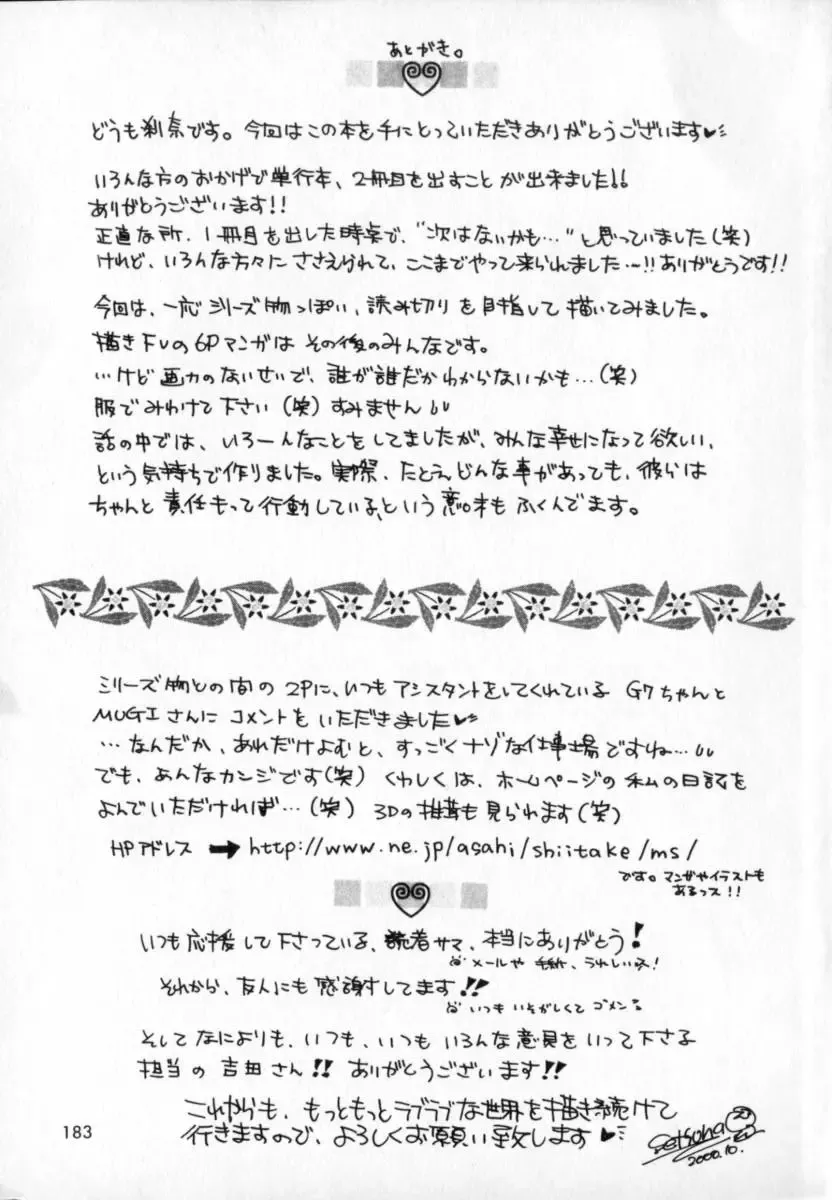 あとがき。
どうも刹奈です。今回はこの本を手にとっていただきありがとうございます♥
いろんな方のおかげで単行本、2冊目を出すことが出来ました!!
ありがとうございます!!
正直な所、1冊目を出した時点で、"次はないかも…"と思っていました(笑)
けれど、いろんな方々にささえられて、ここまでやって来られました…!!ありがとうです!!
今回は、一応シリーズ物っぽい、読み切りを目指して描いてみました。
描き下しの6Pマンガはその後のみんなです。
…けど画力のないせいで、誰が誰だかわからないかも…(笑)
服でみわけて下さい(笑)すみません
話の中では、いろーんなことをしてましたが、みんな幸せになって欲しい、
という気持ちで作りました。実際、たとえどんな事があっても、彼らは
ちゃんと責任もって行動している、という意味もふくんでます。
シリーズ物との間の2Pに、いつもアシスタントをしてくれているG7ちゃんと
MUGIさんにコメントをいただきました♥
…なんだか、あれだけよむと、すっごくナゾな仕事場ですね…
でも、あんなカンジです(笑)くわしくは、ホームページの私の日記を
よんでいただければ…(笑)3Dの椎茸も見られます(笑)
HPアドレス → http://www.ne.jp/asahi/shiitake/ms/
です。マンガやイラストも
あるっス!!
いつも応援して下さっている、読者サマ、本当にありがとう!
メールや手紙、うれしいス!
それから、友人にも感謝してます!!
いつもいそがしくてゴメン
そしてなによりも、いつも、いつもいろんな意見をいって下さる
担当の吉田さん!!ありがとうございます!!
これからも、もっともっとラブラブな世界を描き続けて
行きますので、よろしくお願い致します♥
Setsuna
2000.10.
183